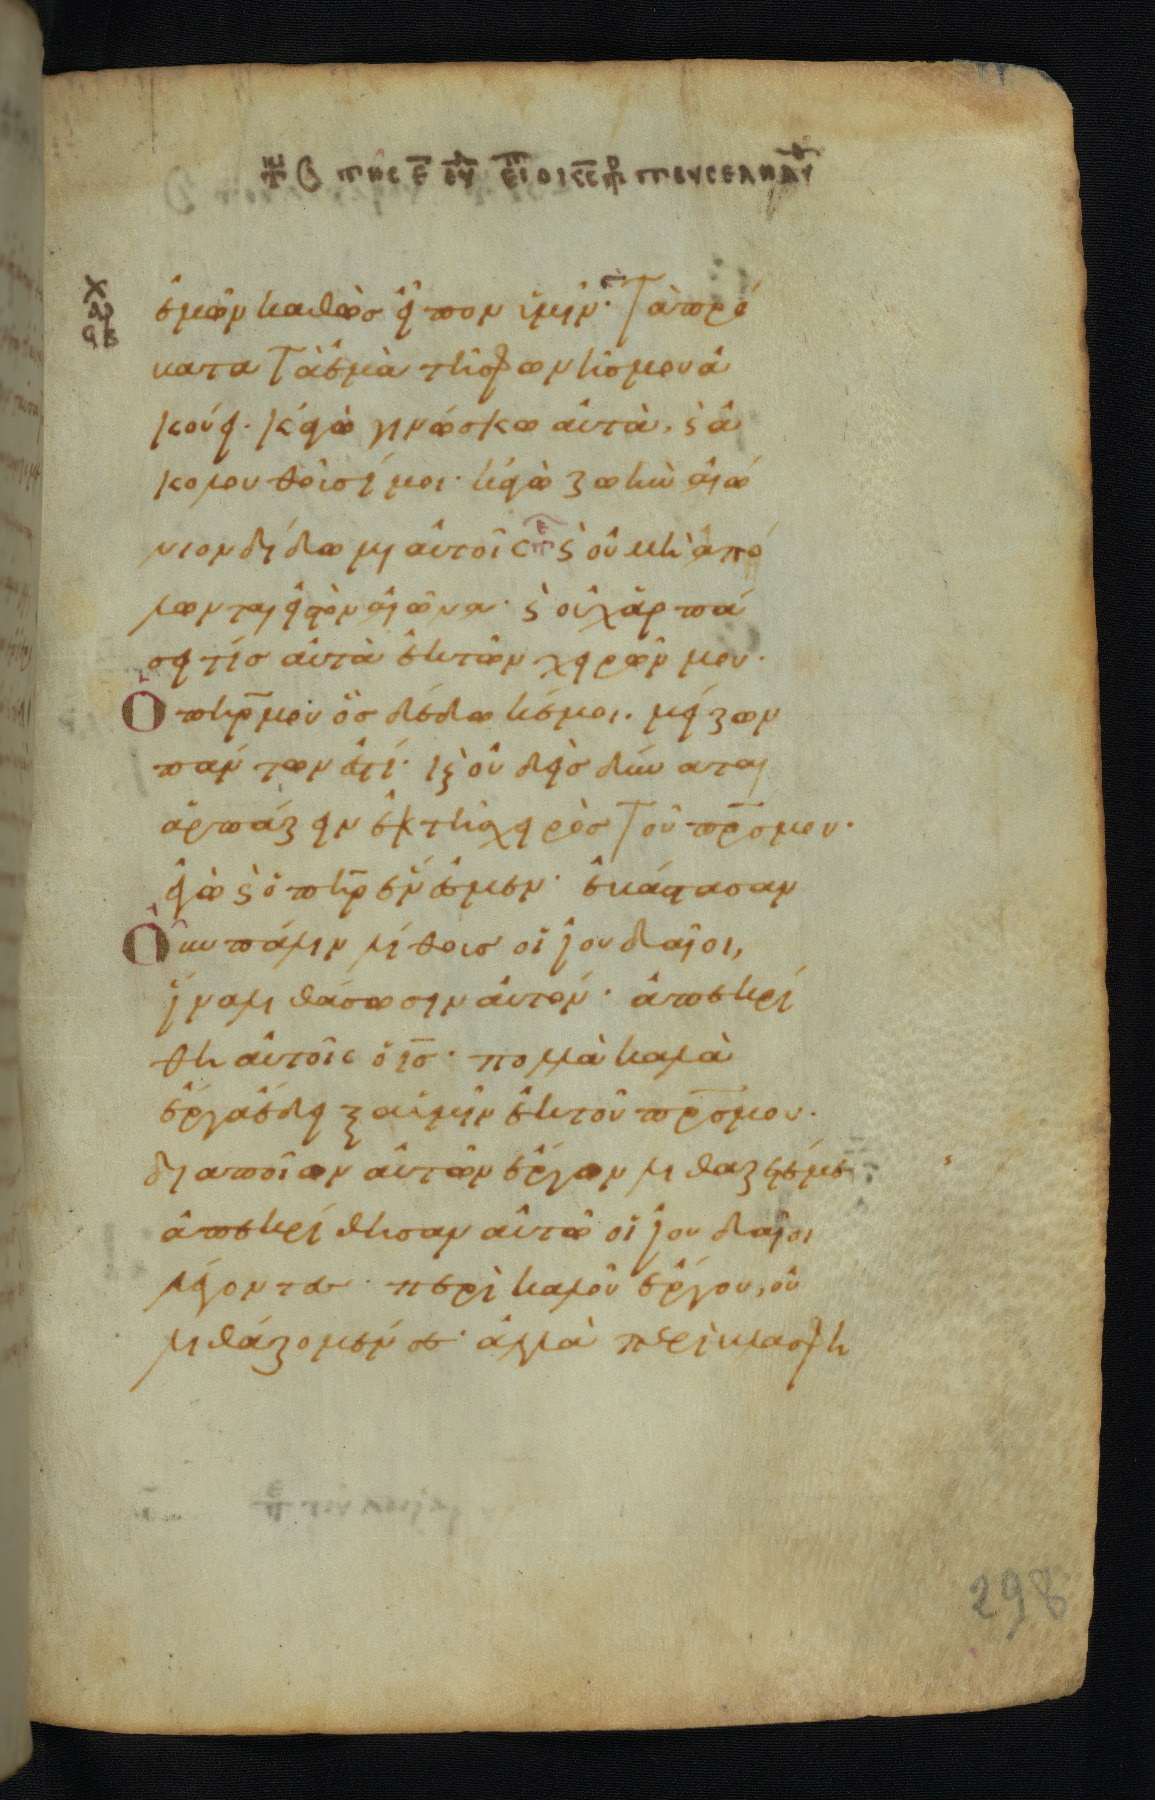 ἐμῶν καθὼς εἶπον ὑμῖν· Τὰ πρό
βατα Τὰ ἐμὰ τῆς φωνῆς μου ἀ
κούει· κἀγὼ γινώσκω αὐτὰ, ϛ ἀ
κολουθοῦσί μοι· κἀγὼ ζωὴν αἰώ
νιον δίδωμι αὐτοῖς ϛ οὐ μὴ ἀπό
λωνται εἰς τὸν αἰῶνα· ϛ οὐχ ἁρπά
σει τίς αὐτὰ ἐκ τῶν χειρῶν μου·
Ὁ πη̅ρ μου ὃς δέδωκέ μοι· μείζων
πάντων ἐστί· ϛ οὐδεὶς δύναται
ἁρπάζειν ἐκ τῆς χειρὸς Τοῦ πρ̅ς μου·
ἐγὼ ϛ ὁ πη̅ρ ἕν ἐσμεν· ἐβάστασαν
Οὖν πάλιν λίθους οἱ ἰουδαῖοι,
ἵνα λιθάσωσιν αὐτόν· ἀπεκρί
θη αὐτοῖς ὁ ι̅ς· πολλὰ καλὰ
ἔργα ἔδειξα ὑμῖν ἐκ τοῦ πρ̅ς μου·
διὰ ποῖον αὐτῶν ἔργον λιθάζετέ με
ἀπεκρίθησαν αὐτῷ οἱ ἰουδαῖοι
λέγοντες· περὶ καλοῦ ἔργου, οὐ
λιθάζομέν σε· ἀλλὰ περὶ βλασφη
298